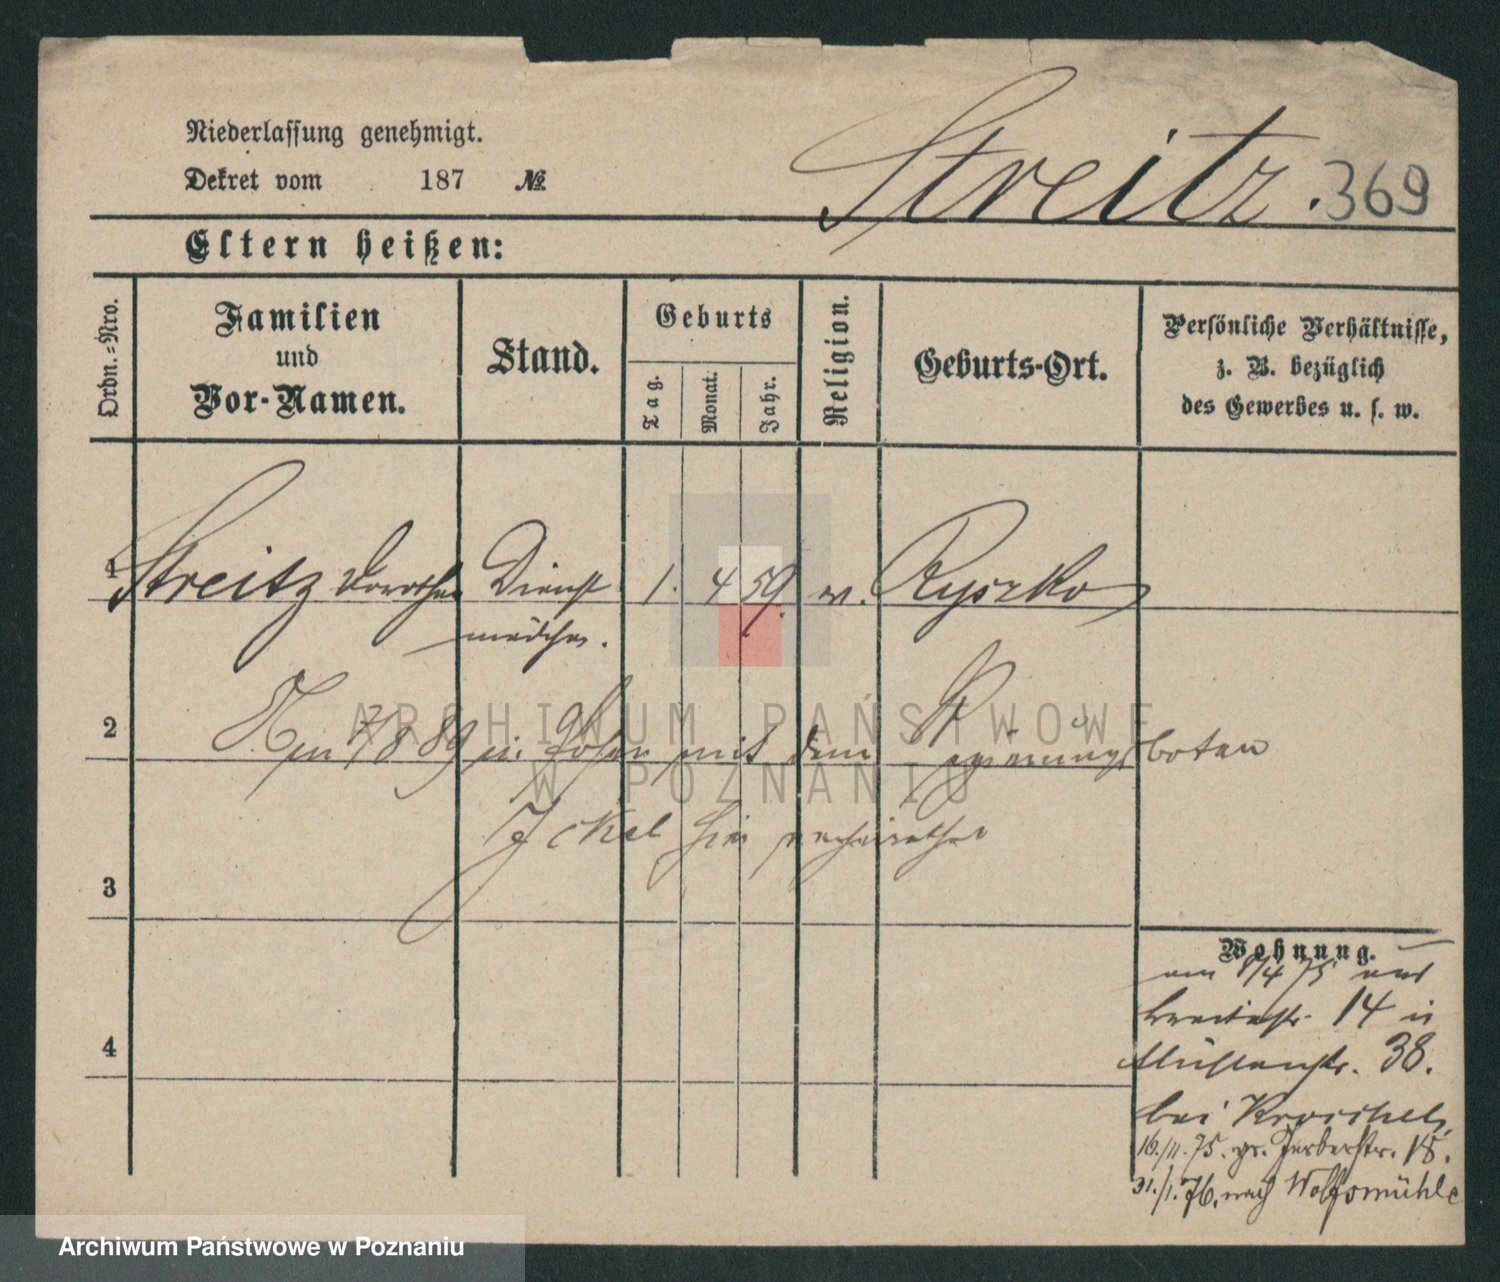 Streitz. 369
Niederlassung genehmigt.
Dekret vom 187 №
Eltern heißen:
Ordn.=Nro.
Familien
und
Vor-Namen.
Stand.
Geburts
Tag.
Monat.
Jahr.
Religion.
Geburts-Ort.
Persönliche Verhältnisse,
z. B. bezüglich
des Gewerbes u. s. w.
1 Streitz Dorothea Dienst 1. 4 59. ev. Ryszko
mädchen.
2 7/8 89 in Posen mit dem Regierungsboten
Jckel hier verheirathet
3
4
Wohnung.
am 8/4 75 aus
Breitestr. 14 in
Mühlenstr. 38.
bei
16./11. 75. gr. Gerberstr. 18.
31./1. 76. nach Wolfsmühle
ARCHIWUM PAŃSTWOWE
W POZNANIU
Archiwum Państwowe w Poznaniu